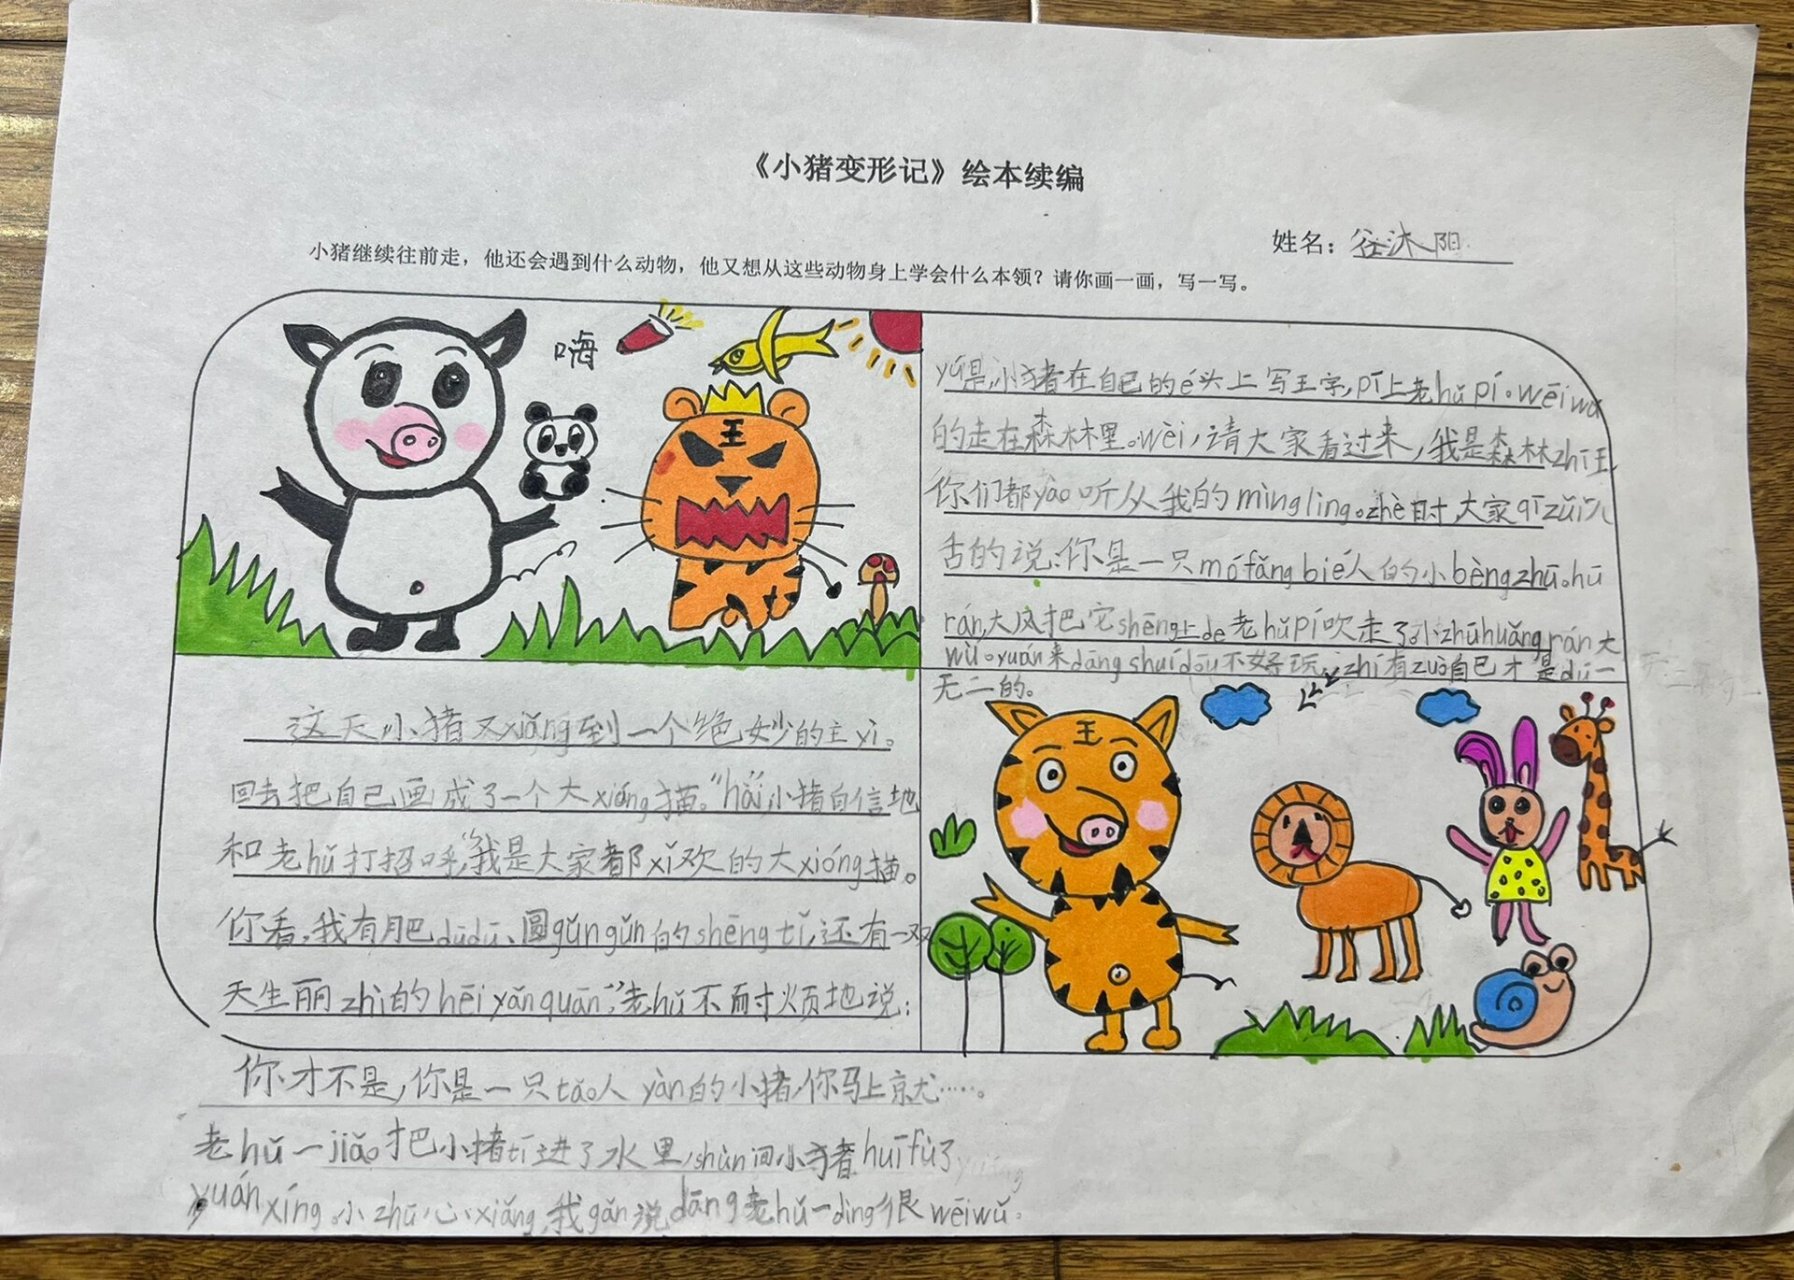 《小猪变形记》绘本续编
姓名：谷沐阳
小猪继续往前走，他还会遇到什么动物，他又想从这些动物身上学会什么本领？请你画一画，写一写。
嗨
王
这天小猪又xiǎng到一个绝妙的主yi。
回去把自己画成了一个大xióng描。“hāi，小猪自信地
和老hǔ打招呼，“我是大家都xǐ欢的大xióng描。
你看，我有肥dūdū、圆gǔngǔn的shēngtǐ，还有一双
天生丽zhì的hēiyǎnquān”，老hǔ不耐烦地说：
你才不是，你是一只tǎo人yàn的小猪，你马上就……。
老hǔ一jiǎo把小猪tī进了水里，shùn间小猪huīfù了
yuánxíng。小zhū心xiǎng，我gǎn说dāng老hǔ一dìng很wēiwǔ。
yú是，小猪在自己的é头上写王字，pī上老hǔpí。wēiwǔ
的走在森林里。wèi，请大家看过来，我是森林zhī王，
你们都yào听从我的mìnglìng。zhè时，大家qīzuǐ八
舌的说：你是一只mófǎngbié人的小bèngzhū。hū
rán，大风把它shēng上de老hǔpí吹走了。小zhūhuǎngrán大
wù。yuán来dāngshuídōu不好玩，zhǐ有zuò自己才是dú一
无二的。
王